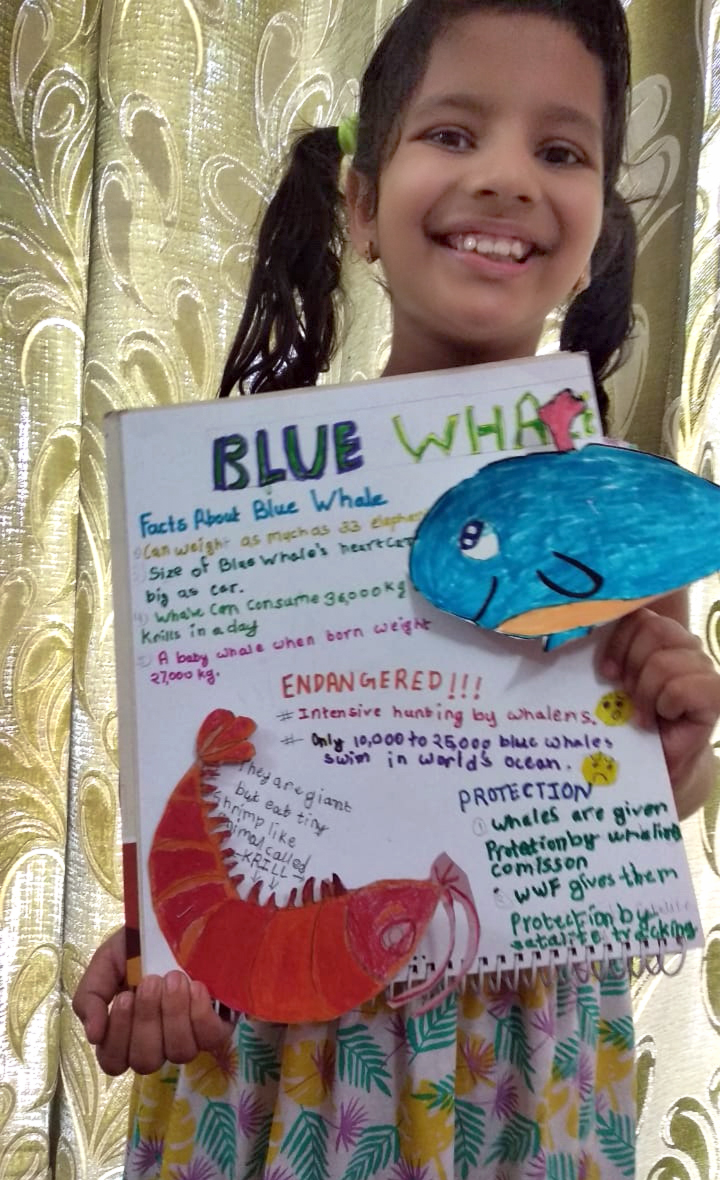 BLUE WHA
Facts About Blue Whale
Can weight as much as 33
Size of Blue Whale's heart
big as car.
4) Whale Can Consume 36,000 kg
Krills in a day
A baby whale when born weight
27,000 kg.
ENDANGERED!!!
# Intensive hunting by whalers.
# Only 10,000 to 25,000 blue whales
swim in world's ocean.
They are giant
but eat tiny
shrimp like
animal called
KRILL
PROTECTION
① whales are given
Protetion by
comisson
WWF gives them
Protection by
satalite tracking